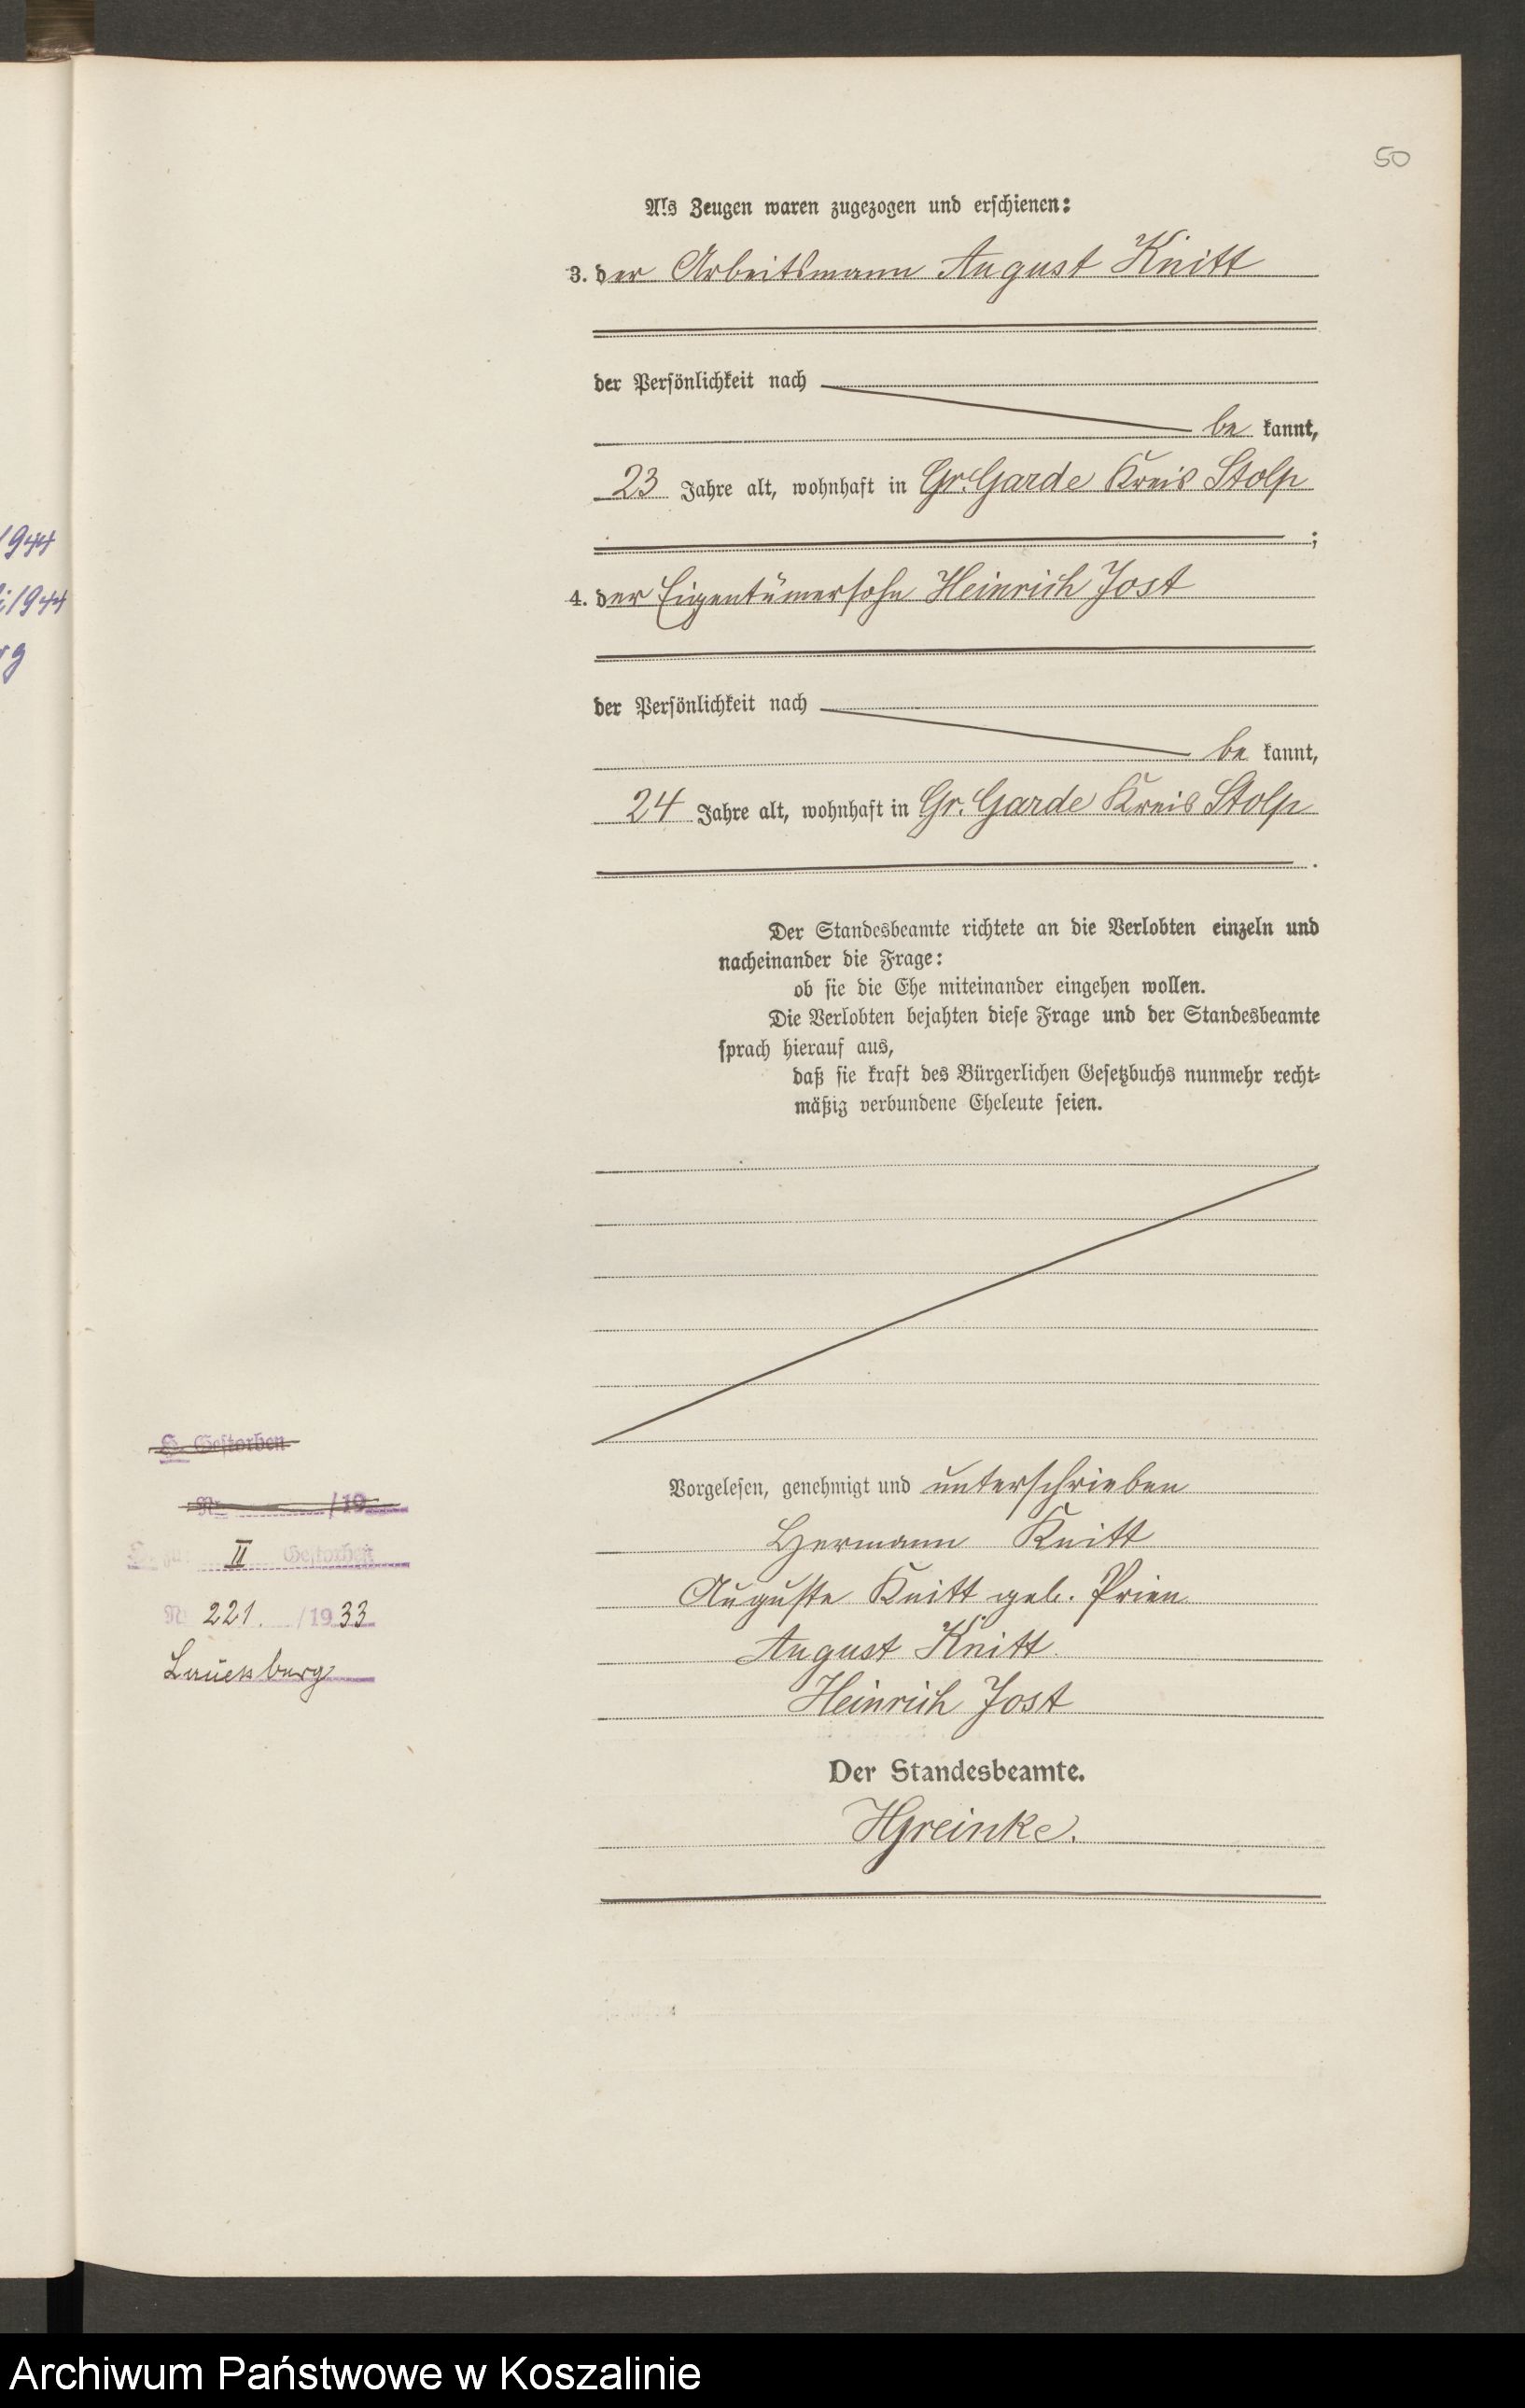 50
Als Zeugen waren zugezogen und erschienen:
3. der Arbeitsmann August Knitt
der Persönlichkeit nach
be kannt,
23 Jahre alt, wohnhaft in Gr. Garde Kreis Stolp
;
4. der Eigentümersohn Heinrich Jost
der Persönlichkeit nach
be kannt,
24 Jahre alt, wohnhaft in Gr. Garde Kreis Stolp
.
Der Standesbeamte richtete an die Verlobten einzeln und
nacheinander die Frage:
ob sie die Ehe miteinander eingehen wollen.
Die Verlobten bejahten diese Frage und der Standesbeamte
sprach hierauf aus,
daß sie kraft des Bürgerlichen Gesetzbuchs nunmehr recht-
mäßig verbundene Eheleute seien.
Vorgelesen, genehmigt und unterschrieben
Hermann Knitt
Auguste Knitt geb. Prien
August Knitt.
Heinrich Jost
Der Standesbeamte.
HGreinke.
1944
1944
rg
Gestorben
Nr /19
II Gestorben
Nr 221. /1933
Lauenburg
Archiwum Państwowe w Koszalinie